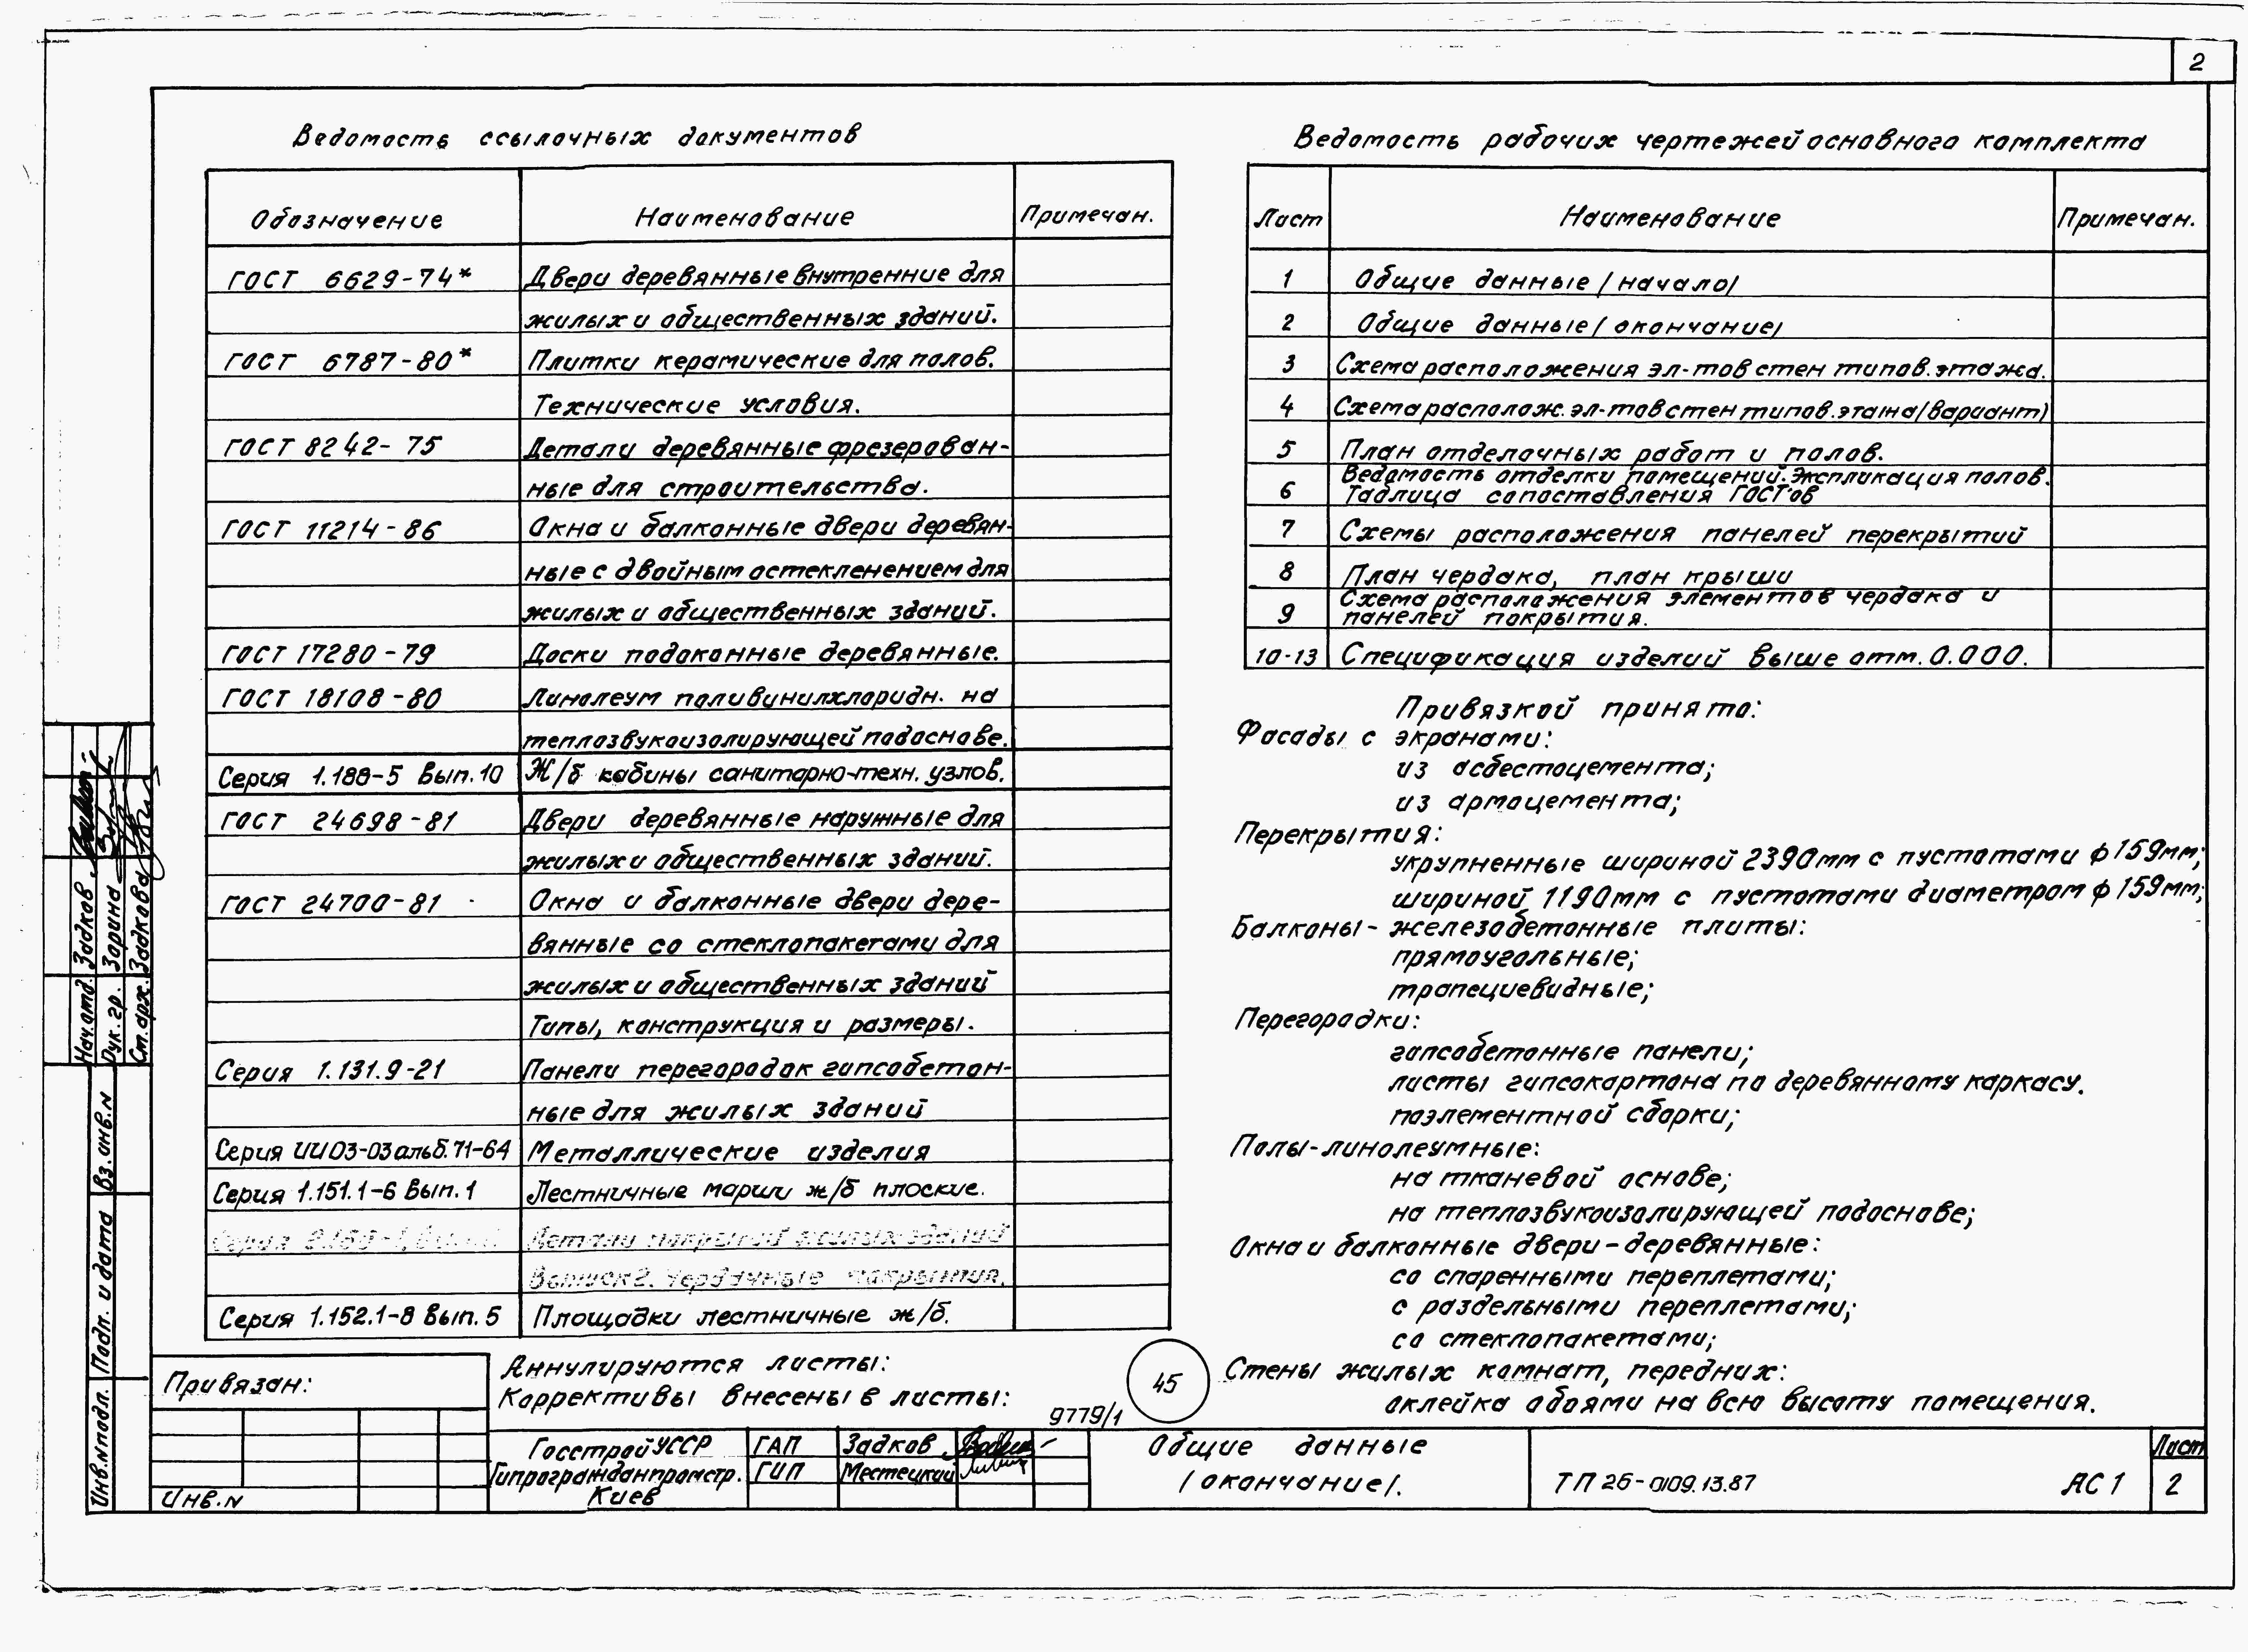 2
Ведомость ссылочных документов
Обозначение Наименование Примечан.
ГОСТ 6629-74* Двери деревянные внутренние для
жилых и общественных зданий.
ГОСТ 6787-80* Плитки керамические для полов.
Технические условия.
ГОСТ 8242-75 Детали деревянные фрезерован-
ные для строительства.
ГОСТ 11214-86 Окна и балконные двери деревян-
ные с двойным остекленением для
жилых и общественных зданий.
ГОСТ 17280-79 Доски подоконные деревянные.
ГОСТ 18108-80 Линолеум поливинилхлоридн. на
теплозвукоизолирующей подоснове.
Серия 1.188-5 Вып.10 Ж/б кабины санитарно-техн. узлов.
ГОСТ 24698-81 Двери деревянные наружные для
жилых и общественных зданий.
ГОСТ 24700-81 Окна и балконные двери дере-
вянные со стеклопакетами для
жилых и общественных зданий
Типы, конструкция и размеры.
Серия 1.131.9-21 Панели перегородок гипсобетон-
ные для жилых зданий
Серия ИИ03-03 альб.71-64 Металлические изделия
Серия 1.151.1-6 Вып.1 Лестничные марши ж/б плоские.
Серия Детали покрытий жилых зданий
Выпуск 2. Чердачные покрытия.
Серия 1.152.1-8 Вып. 5 Площадки лестничные ж/б.
Ведомость рабочих чертежей основного комплекта
Лист Наименование Примечан.
1 Общие данные /начало/
2 Общие данные /окончание/
3 Схема расположения эл-тов стен типов. этажа.
4 Схема располож. эл-тов стен типов. этажа /вариант/
5 План отделочных работ и полов.
6 Ведомость отделки помещений. Экспликация полов.
Таблица сопоставления ГОСТ'ов
7 Схемы расположения панелей перекрытий
8 План чердака, план крыши
9 Схема расположения элементов чердака и
панелей покрытия.
10-13 Спецификация изделий выше отм. 0.000.
Привязкой принято:
Фасады с экранами:
из асбестоцемента;
из армоцемента;
Перекрытия:
укрупненные шириной 2390мм с пустотами ф159мм;
шириной 1190мм с пустотами диаметром ф159мм;
Балконы- железобетонные плиты:
прямоугольные;
трапециевидные;
Перегородки:
гипсобетонные панели;
листы гипсокартона по деревянному каркасу.
поэлементной сборки;
Полы-линолеумные:
на тканевой основе;
на теплозвукоизолирующей подоснове;
Окна и балконные двери-деревянные:
со спаренными переплетами;
с раздельными переплетами;
со стеклопакетами;
Стены жилых комнат, передних:
оклейка обоями на всю высоту помещения.
Аннулируются листы:
Коррективы внесены в листы:
45
9779/1
Привязан:
Инв.N
Госстрой УССР
Гипрогражданпромстр.
Киев
ГАП Задков
ГИП Местецкий
Общие данные
/окончание/.
ТП 26-0109.13.87 АС1
Лист
2
Нач.отд. Задков
Рук. гр. Зорина
Ст.арх. Задкова
Вз. инв.N
Подп. и дата
Инв.Nподл.